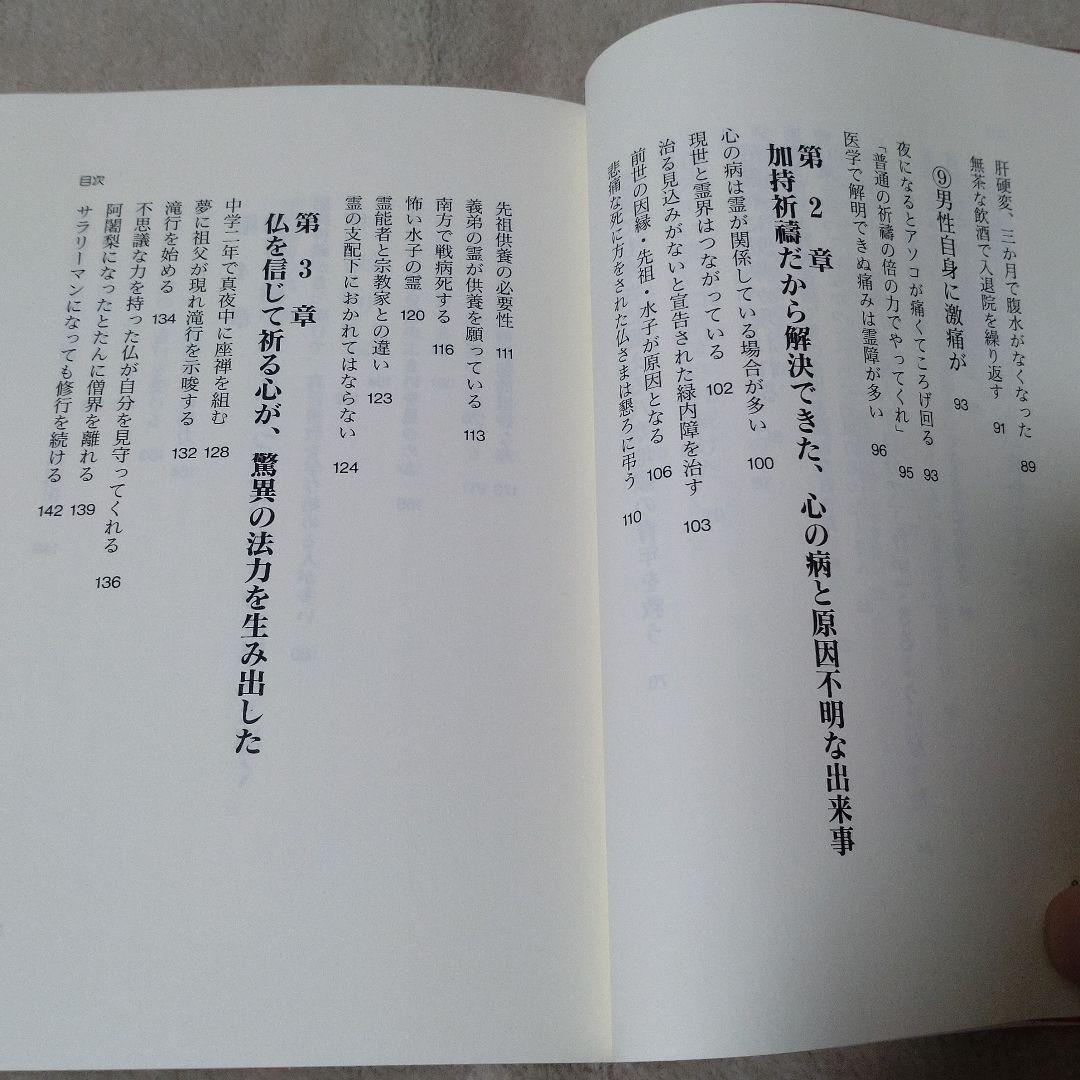 肝硬変、三か月で腹水がなくなった 89
無茶な飲酒で入退院を繰り返す 91
⑨男性自身に激痛が 93
夜になるとアソコが痛くてころげ回る 93
「普通の祈禱の倍の力でやってくれ」 95
医学で解明できぬ痛みは霊障が多い 96
第2章
加持祈禱だから解決できた、心の病と原因不明な出来事
心の病は霊が関係している場合が多い 100
現世と霊界はつながっている 102
治る見込みがないと宣告された緑内障を治す 103
前世の因縁・先祖・水子が原因となる 106
悲痛な死に方をされた仏さまは懇ろに弔う 110
先祖供養の必要性 111
義弟の霊が供養を願っている 113
南方で戦病死する 116
怖い水子の霊 120
霊能者と宗教家との違い 123
霊の支配下におかれてはならない 124
第3章
仏を信じて祈る心が、驚異の法力を生み出した
中学二年で真夜中に座禅を組む 128
夢に祖父が現れ滝行を示唆する 132
滝行を始める 134
不思議な力を持った仏が自分を見守ってくれる 136
阿闍梨になったとたんに僧界を離れる 139
サラリーマンになっても修行を続ける 142
目次